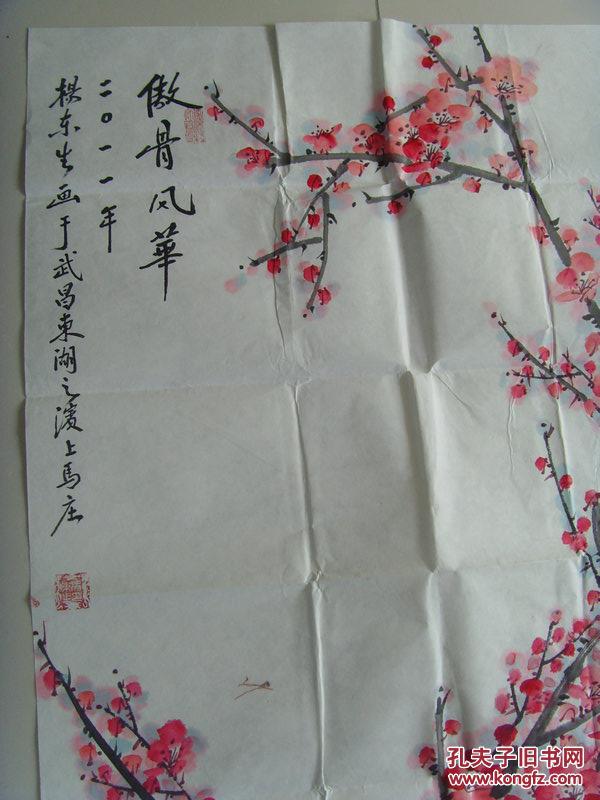 傲骨风華
二〇一一年
楊东生画于武昌東湖之滨上馬庄
孔夫子旧书网
www.kongfz.com